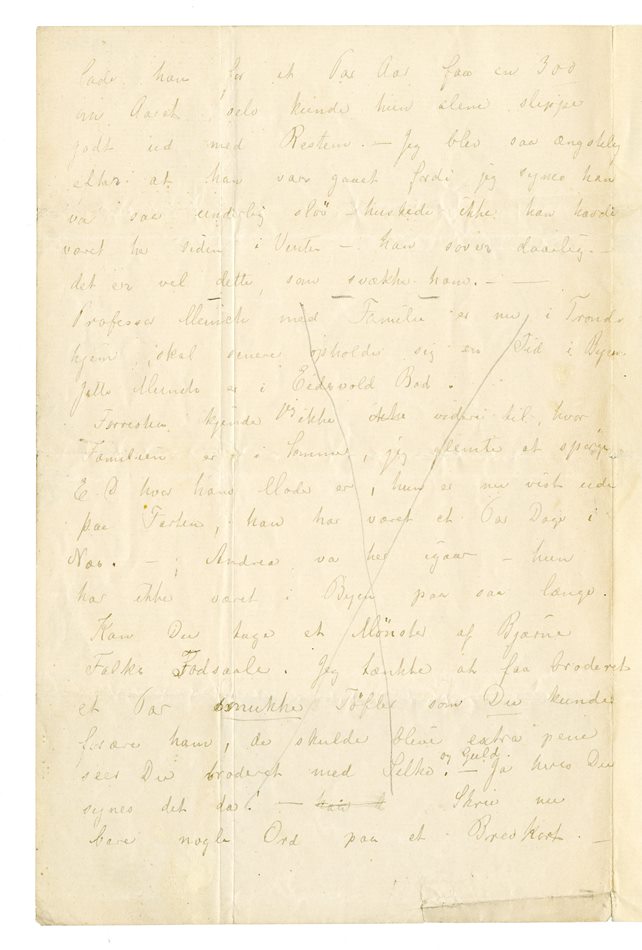 Lade ham for et Par Aar faa en 300
om Aaret, selv kunde hun alene slippe
godt ud med Resten. — Jeg blev saa ængstelig
efter at han var gaaet fordi jeg synes han
va' saa underlig sløv — huskede ikke han havde
været he siden i Vinter — han sover daarlig —
det er vel dette, som svække ham. — —
Professor Munch med Familie er nu i Trond-
hjem, skal senere opholde sig en Tid i Byen.
Munch er i Eidsvold Bad.
Forresten kjende Vi ikke videre til, hvor
Familien er i Sommer, jeg glemte at spørge
E D hvor hans Mode er, hun er nu vist ude
paa Farten, han har været et Par Dage i
Næs. — ; Andrea va her igaar — hun
har ikke været i Byen paa saa længe.
Kan Du tage et Mönster af Bjarne
Falks Fodsaale. Jeg tænkte at faa broderet
et Par smukke Töfler som Du kunde
forære ham, de skulde blive extra pene
seer Du broderet med Silke og Guld. — Ja hvis Du
synes det da! — Skriv nu
bare nogle Ord paa et Brevkort. —